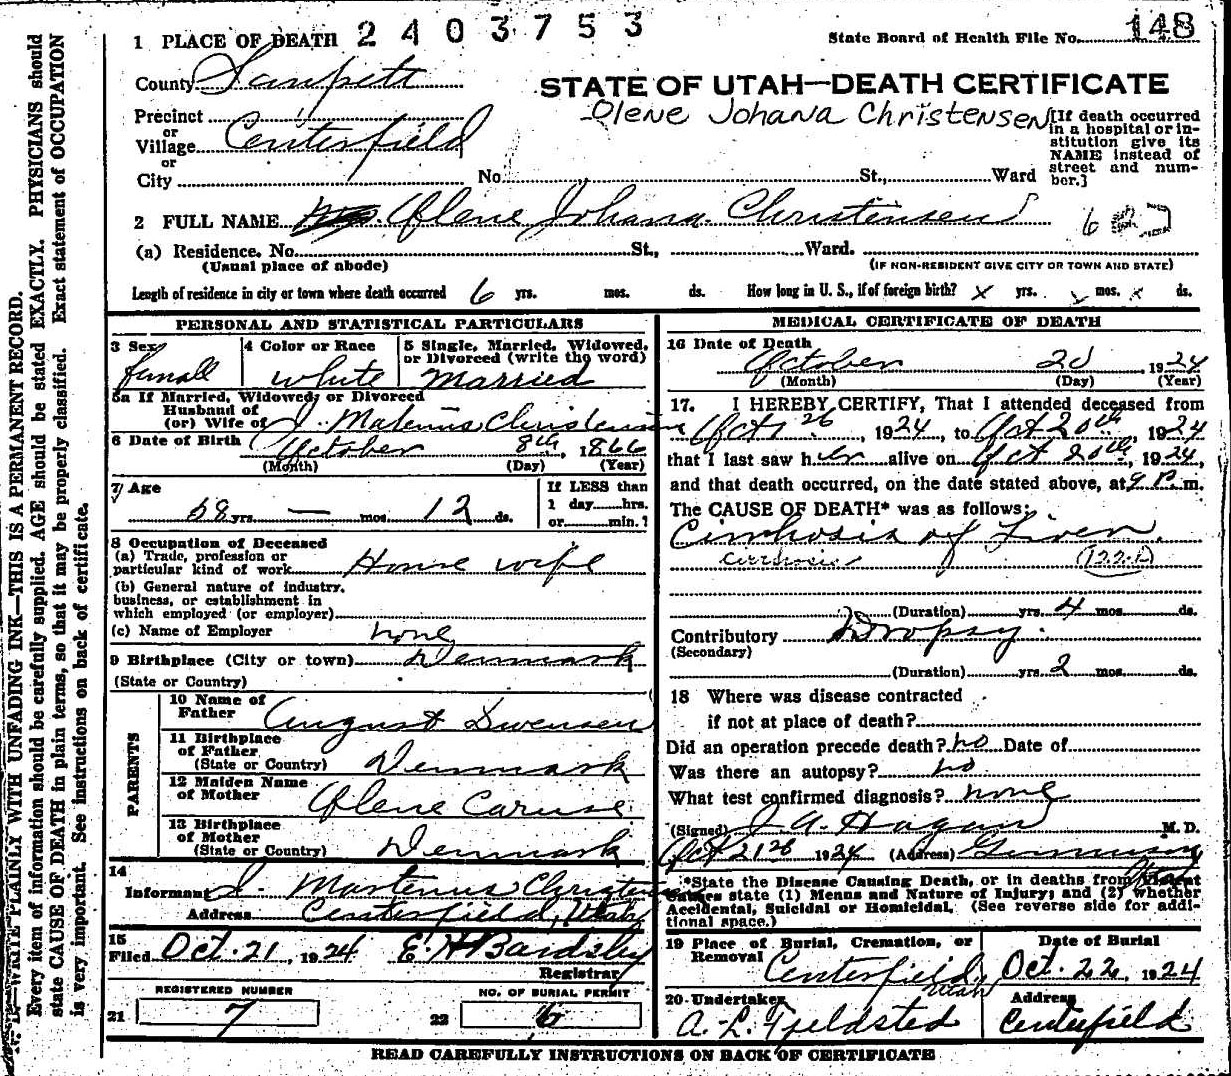 2403753
State Board of Health File No. 148
1 PLACE OF DEATH
County Sanpete
STATE OF UTAH—DEATH CERTIFICATE
Olene Johana Christensen
Precinct
or
Village Centerfield
or
City No. St., Ward
[If death occurred
in a hospital or in-
stitution give its
NAME instead of
street and num-
ber.]
2 FULL NAME Olene Johana Christensen
(a) Residence. No. St., Ward.
(Usual place of abode)
(IF NON-RESIDENT GIVE CITY OR TOWN AND STATE)
Length of residence in city or town where death occurred 6 yrs. mos. ds. How long in U. S., if of foreign birth? x yrs. x mos. x ds.
PERSONAL AND STATISTICAL PARTICULARS
3 Sex femall
4 Color or Race white
5 Single, Married, Widowed,
or Divorced (write the word)
Married
5a If Married, Widowed, or Divorced
Husband of
(or) Wife of J. Christensen
6 Date of Birth October 8th, 1866
(Month) (Day) (Year)
7 Age
58 yrs. — mos. 12 ds.
If LESS than
1 day hrs.
or min.?
8 Occupation of Deceased
(a) Trade, profession or
particular kind of work House wife
(b) General nature of industry,
business, or establishment in
which employed (or employer)
(c) Name of Employer none
9 Birthplace (City or town) Denmark
(State or Country)
PARENTS
10 Name of
Father August Swensen
11 Birthplace
of Father
(State or Country) Denmark
12 Maiden Name
of Mother Olene Caruse
13 Birthplace
of Mother
(State or Country) Denmark
14
Informant J. Martenus Christensen
Address Centerfield, Utah
15
Filed Oct. 21, 1924 E. H Bardsley
Registrar
REGISTERED NUMBER
21 7
NO. OF BURIAL PERMIT
22 6
MEDICAL CERTIFICATE OF DEATH
16 Date of Death
October 20, 1924
(Month) (Day) (Year)
17. I HEREBY CERTIFY, That I attended deceased from
Oct 1924, to Oct 20th, 1924
that I last saw her alive on Oct 20th, 1924,
and that death occurred, on the date stated above, at 9 P. m.
The CAUSE OF DEATH* was as follows:
Cirrhosis of Liver
(Duration) yrs. 4 mos. ds.
Contributory Dropsy.
(Secondary)
(Duration) yrs. 2 mos. ds.
18 Where was disease contracted
if not at place of death?
Did an operation precede death? no Date of
Was there an autopsy? no
What test confirmed diagnosis? none
(Signed) J. A. Hagan M. D.
Oct 21st 1924 (Address) Gunnison
Utah
*State the Disease Causing Death, or in deaths from Violent
Causes state (1) Means and Nature of Injury; and (2) whether
Accidental, Suicidal or Homicidal. (See reverse side for addi-
tional space.)
19 Place of Burial, Cremation, or
Removal
Centerfield,
Utah
Date of Burial
Oct. 22, 1924
20 Undertaker
A. L. Fjeldsted
Address
Centerfield
READ CAREFULLY INSTRUCTIONS ON BACK OF CERTIFICATE
N. B.—WRITE PLAINLY WITH UNFADING INK—THIS IS A PERMANENT RECORD.
Every item of information should be carefully supplied. AGE should be stated EXACTLY. PHYSICIANS should
state CAUSE OF DEATH in plain terms, so that it may be properly classified. Exact statement of OCCUPATION
is very important. See instructions on back of certificate.